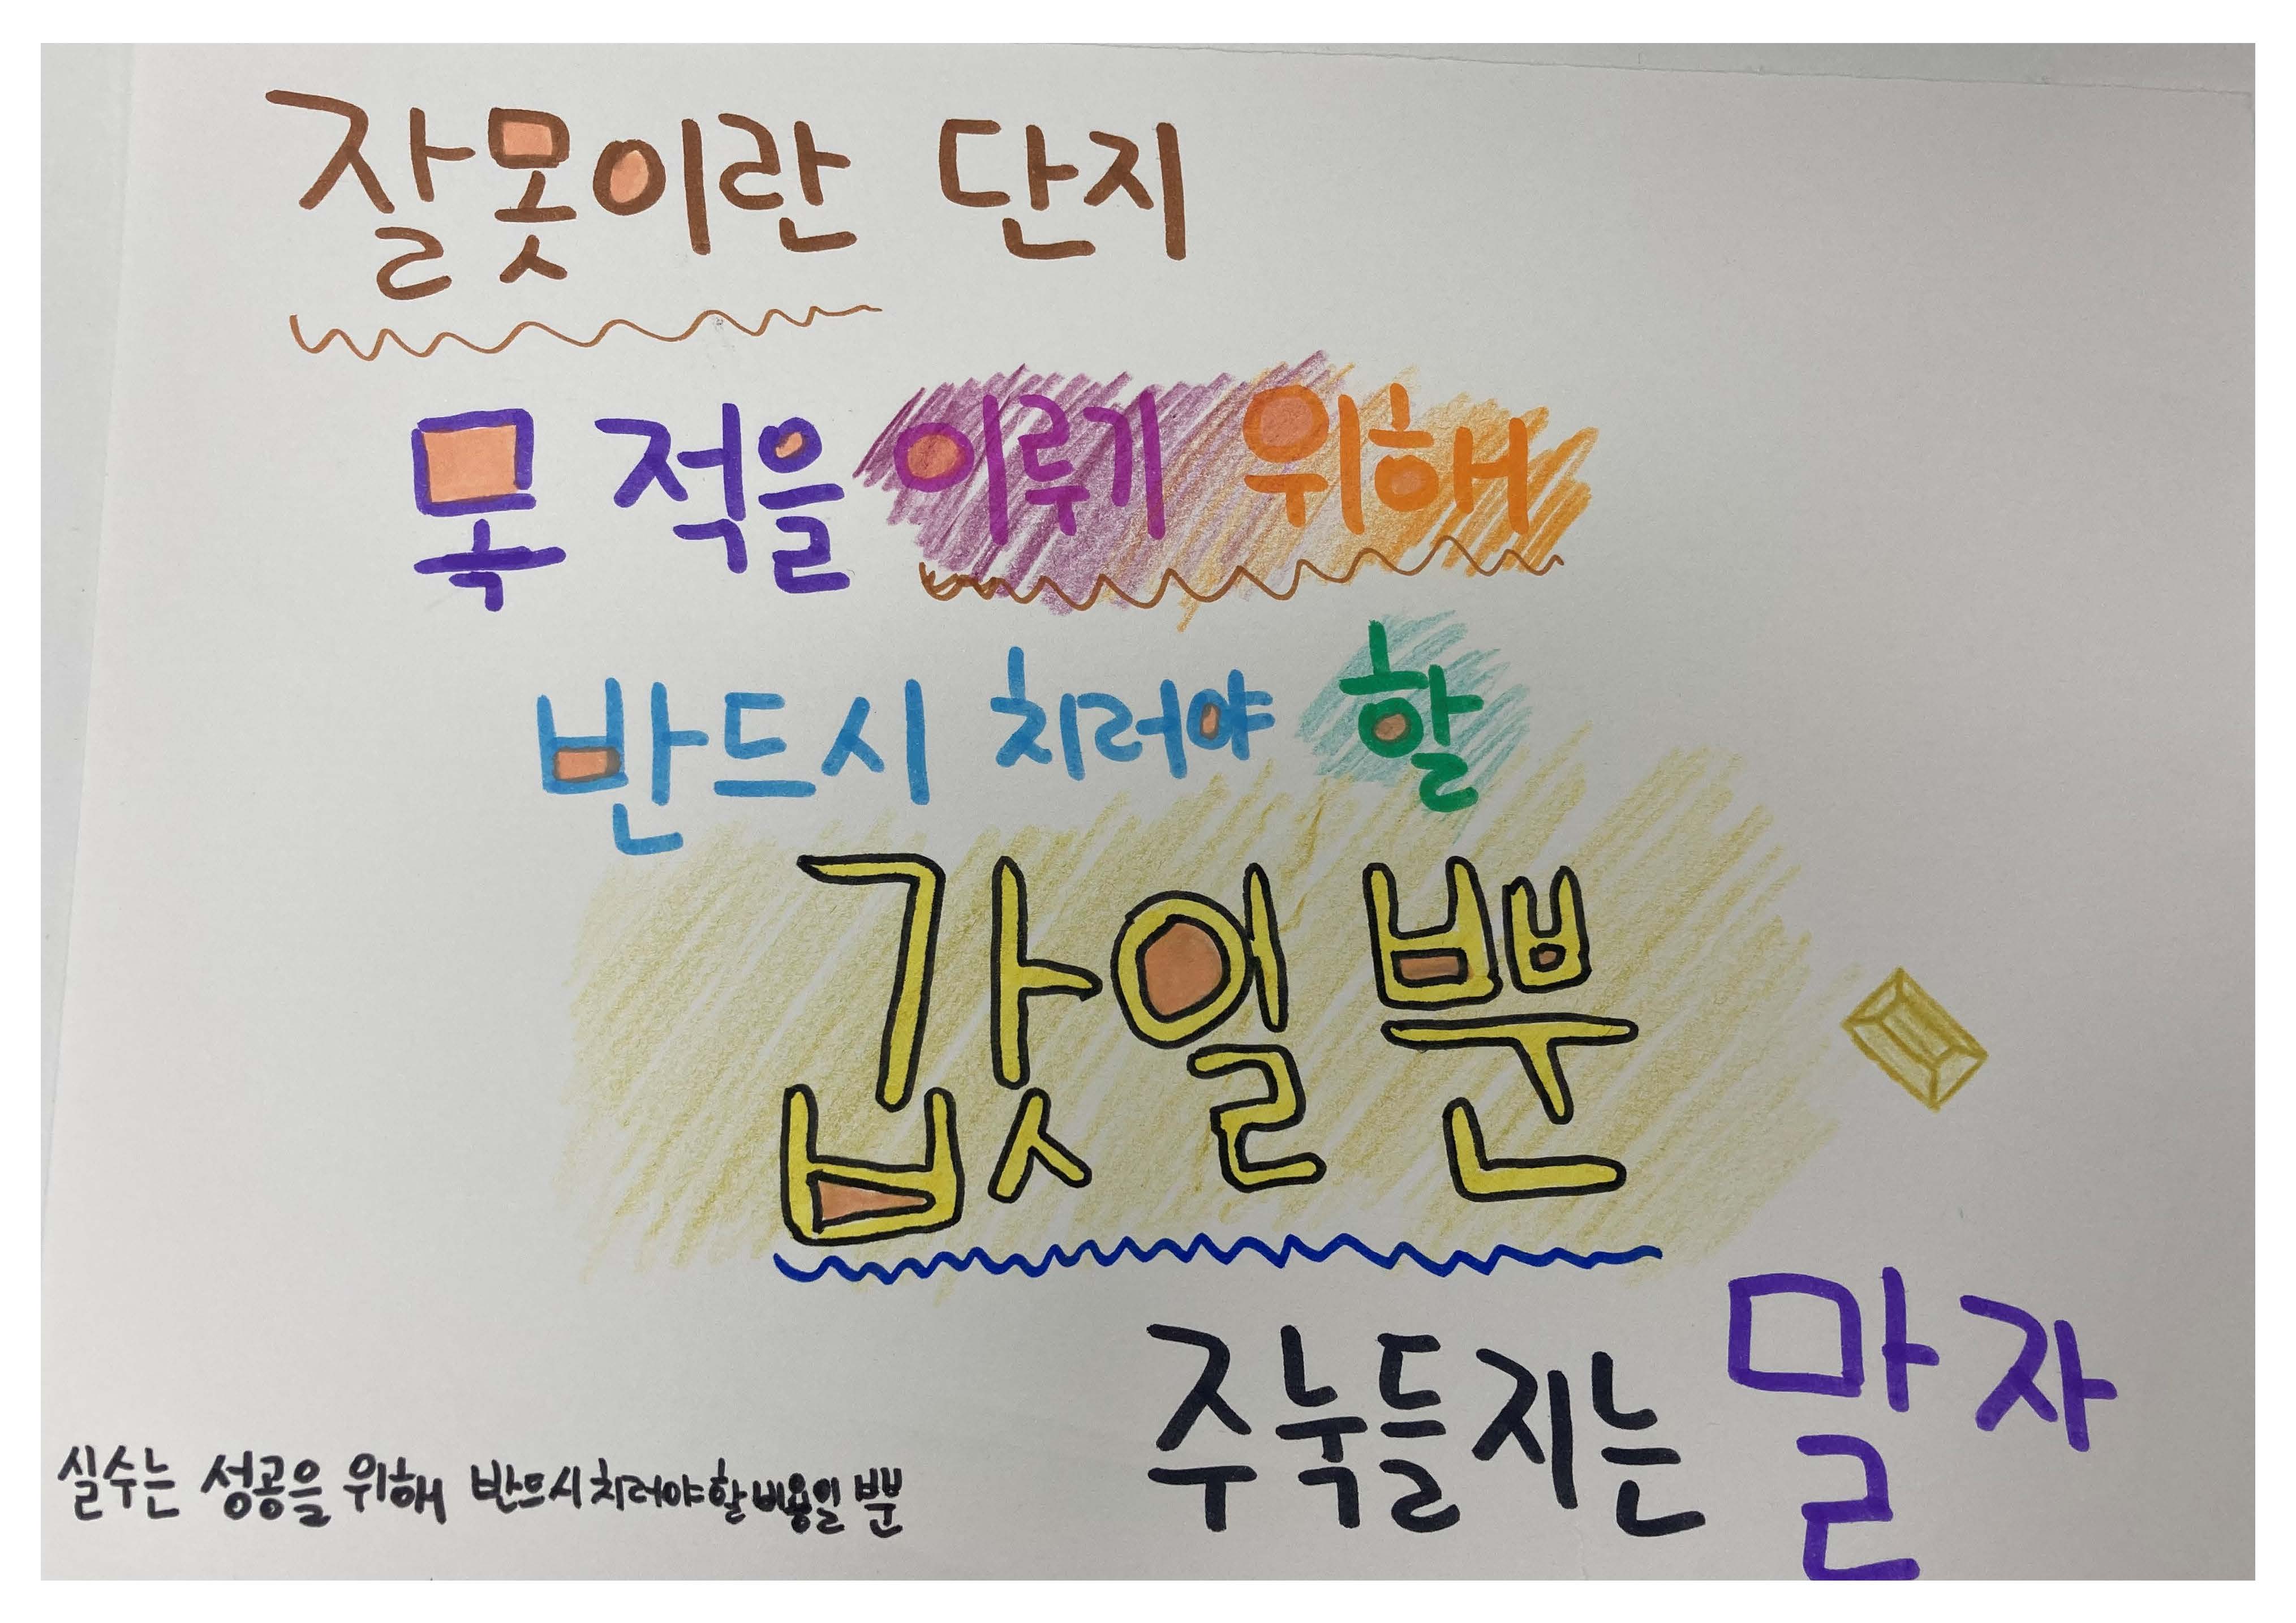 잘못이란 단지
목적을 이루기 위해
반드시 치러야 할
값일 뿐
주눅들지는 말자
실수는 성공을 위해 반드시 치러야할 비용일 뿐